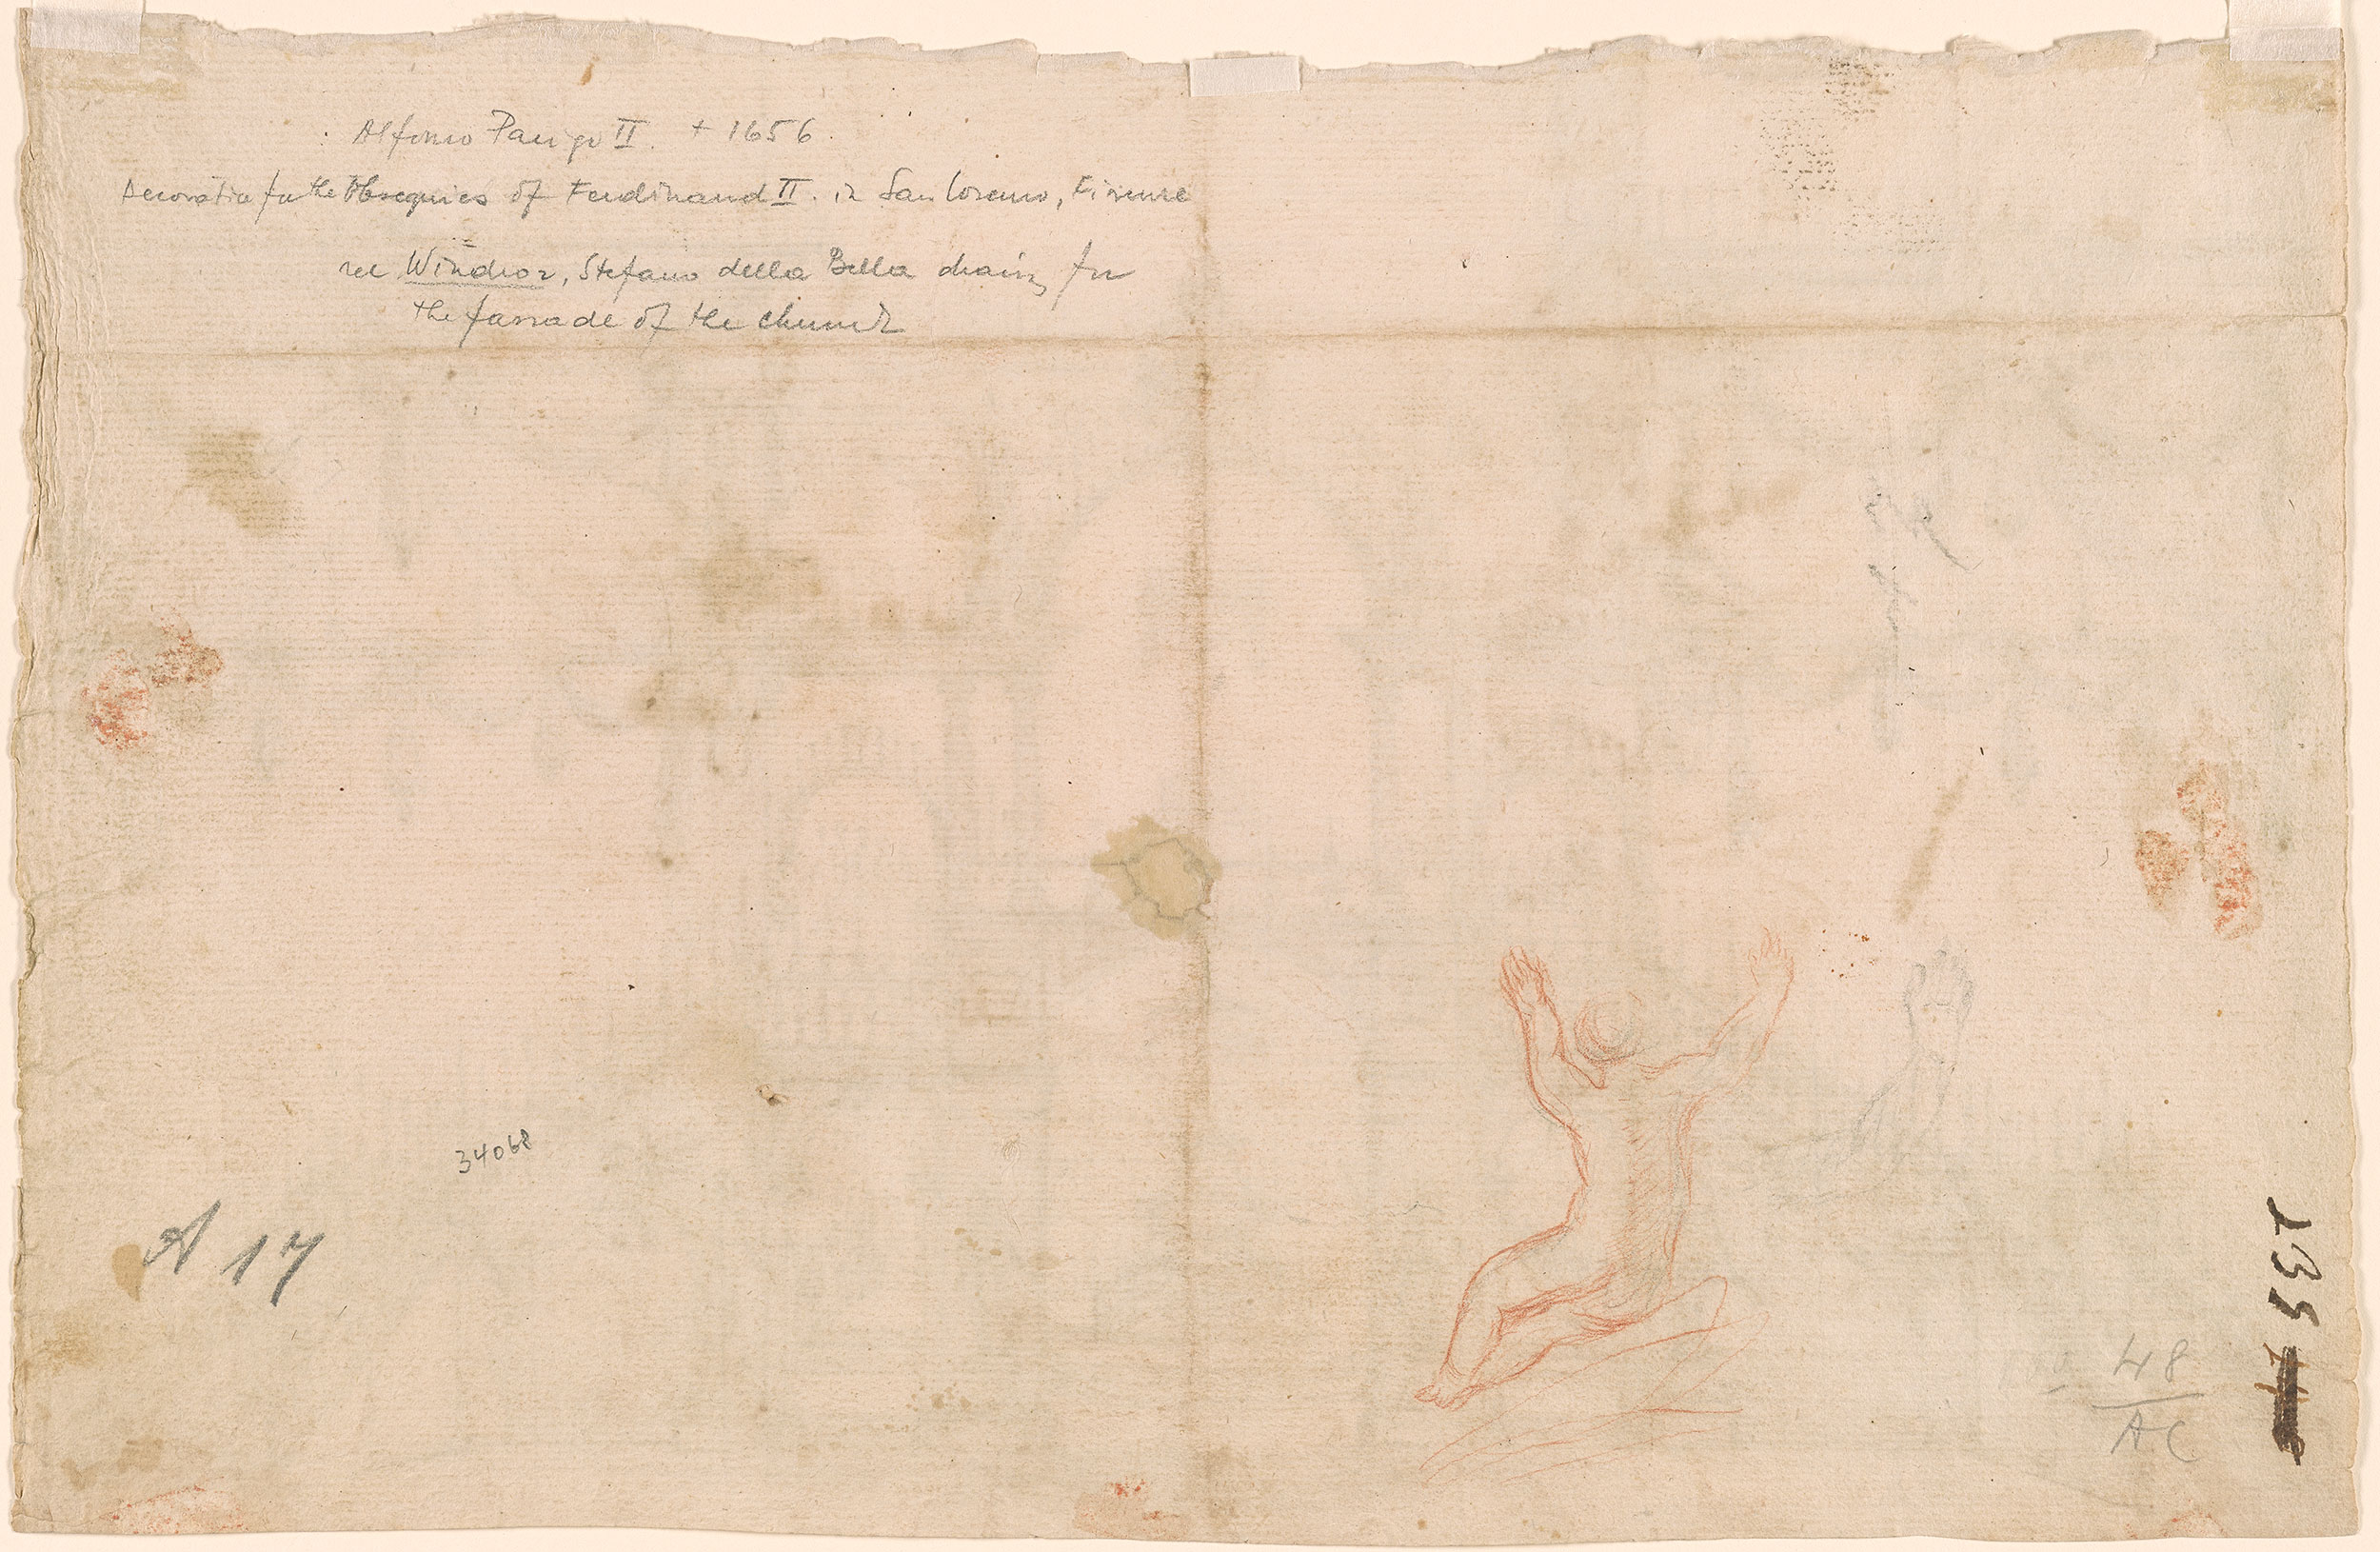 Alfonso Parigi II. + 1656.
Decoration for the Obsequies of Ferdinand II. in San Lorenzo, Firenze
see Windsor, Stefano della Bella drawing for
the fassade of the church
34068
A 17
48
AC